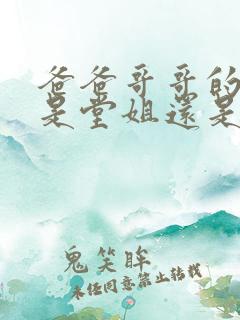 爸爸哥哥的
是堂姐還是
鬼笑眸
未经同意禁止转载